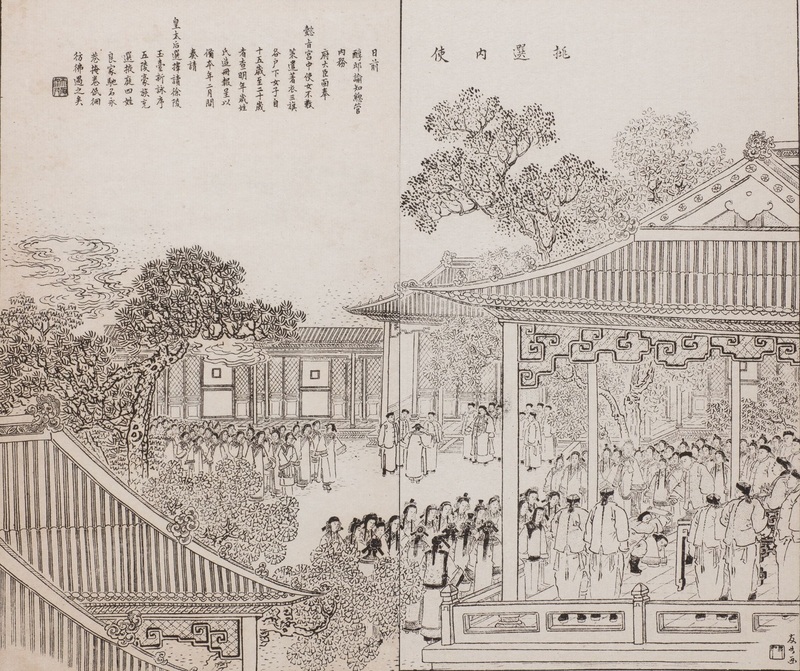 挑選內使
日前
醇邸諭知總管
內務
府大臣面奉
懿旨宮中使女不敷
差遣著在三旗
各戶下女子自
十五歲至二十歲
者查明年歲姓
氏造冊報呈以
備本年二月間
奏請
皇太后選擇讀徐陵
玉臺新詠序
五陵豪族充
選掖庭四姓
良家馳名永
巷掩卷低徊
彷彿遇之矣